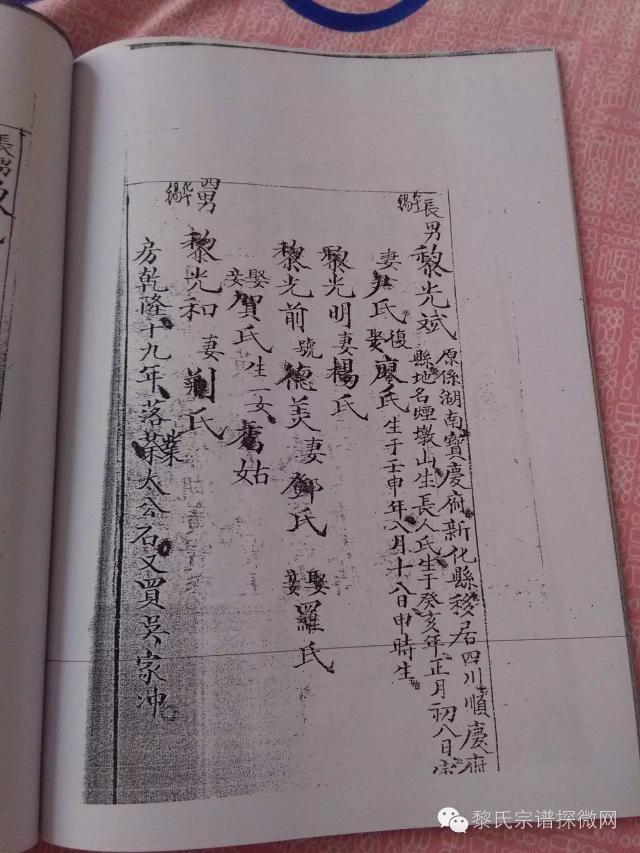 長男黎光斌
原係湖南寶慶府新化縣移居四川順慶府
縣地名煙墩山生長人氏生于癸亥年正月初八日
妻尹氏復娶廖氏生于壬申年八月十八日申時生
黎光明妻楊氏
黎光前號德美妻鄧氏娶妾羅氏
娶妾賀氏生一女滿姑
男
黎光和妻劉氏
房乾隆十九年落業太公石又買吳家冲
長男
黎氏宗谱探微网